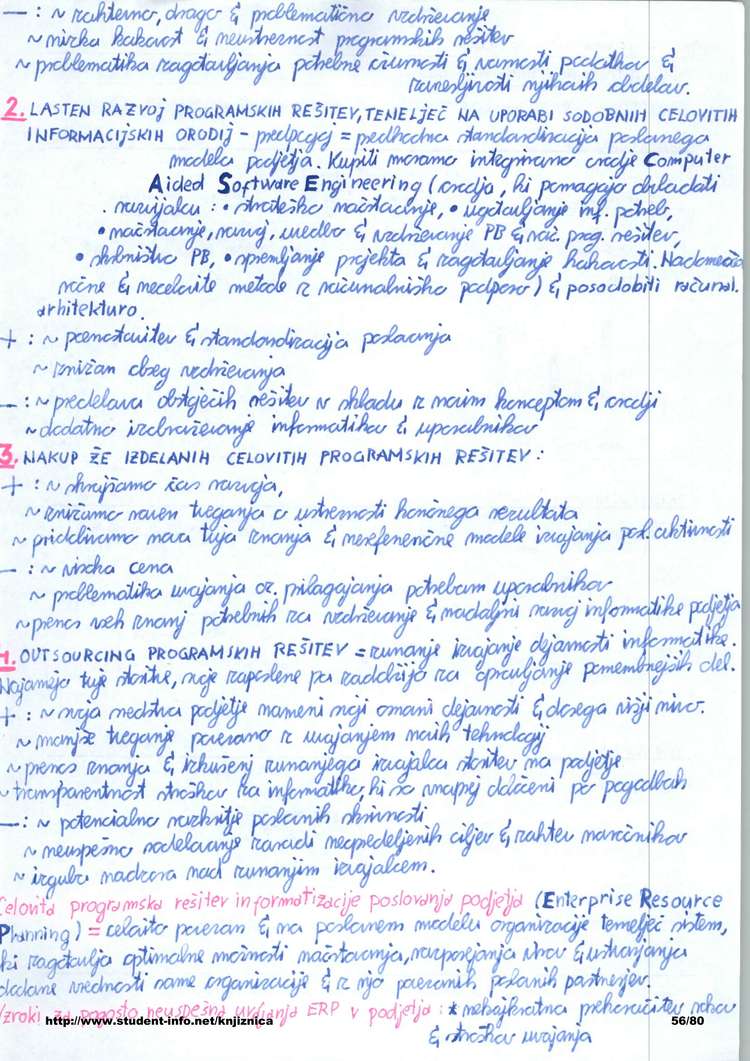 — : ~ zahtevno, drago & problematično vzdrževanje
~ nizka kakovost & neustreznost programskih rešitev
~ problematika zagotavljanja potrebne ažurnosti & varnosti podatkov &
zanesljivosti njihovih obdelav.
2. LASTEN RAZVOJ PROGRAMSKIH REŠITEV, TEMELJEČ NA UPORABI SODOBNIH CELOVITIH
INFORMACIJSKIH ORODIJ - predpogoj = predhodna standardizacija poslovnega
modela podjetja. Kupiti moramo integrirano orodje Computer
Aided Software Engineering (orodja, ki pomagajo obladati
razvijalcu : • strateško načrtovanje, • ugotavljanje inf. potreb,
• načrtovanje, razvoj, uvedbo & vzdrževanje PB & rač. prog. rešitev,
• skrbništvo PB, • spremljanje projekta & zagotavljanje kakovosti. Nadomešča
ročne & necelovite metode z računalniško podporo) & posodobiti računal.
arhitekturo.
+ : ~ poenostavitev & standardizacija poslovanja
~ znižan obseg vzdrževanja
— : ~ predelava obstoječih rešitev v skladu z novim konceptom & orodji
~ dodatno izobraževanje informatikov & uporabnikov
3. NAKUP ŽE IZDELANIH CELOVITIH PROGRAMSKIH REŠITEV :
+ : ~ skrajšamo čas razvoja,
~ znižamo raven tveganja o ustreznosti končnega rezultata
~ pridobivamo nova tuja znanja & referenčne modele izvajanja posl. aktivnosti
— : ~ visoka cena
~ problematika uvajanja oz. prilagajanja potrebam uporabnikov
~ prenos vseh znanj potrebnih za vzdrževanje & nadaljni razvoj informatike podjetja
4. OUTSOURCING PROGRAMSKIH REŠITEV = zunanje izvajanje dejavnosti informatike.
Najamejo tuje storitve, svoje zaposlene pa zadržijo za opravljanje pomembnejših del.
+ : ~ svoja sredstva podjetje nameni svoji osnovni dejavnosti & dosega višji nivo.
~ manjše tveganje povezano z uvajanjem novih tehnologij
~ prenos znanja & izkušenj zunanjega izvajalca storitev na podjetje
~ transparentnost stroškov za informatiko, ki so vnaprej določeni po pogodbah
— : ~ potencialno razkritje poslovnih skrivnosti
~ neuspešno sodelovanje zaradi neopredeljenih ciljev & zahtev naročnikov
~ izguba nadzora nad zunanjim izvajalcem.
Celovita programska rešitev informatizacije poslovanja podjetja (Enterprise Resource
Planning) = celovito povezan & na poslovnem modelu organizacije temelječ sistem,
ki zagotavlja optimalne možnosti načrtovanja, razporejanja virov & ustvarjanja
dodane vrednosti same organizacije & z njo povezanih poslovnih partnerjev.
Vzroki za pogosto neuspešna uvajanja ERP v podjetja : * nekajkratna prekoračitev rokov
& stroškov uvajanja
http://www.student-info.net/knjiznica
56/80